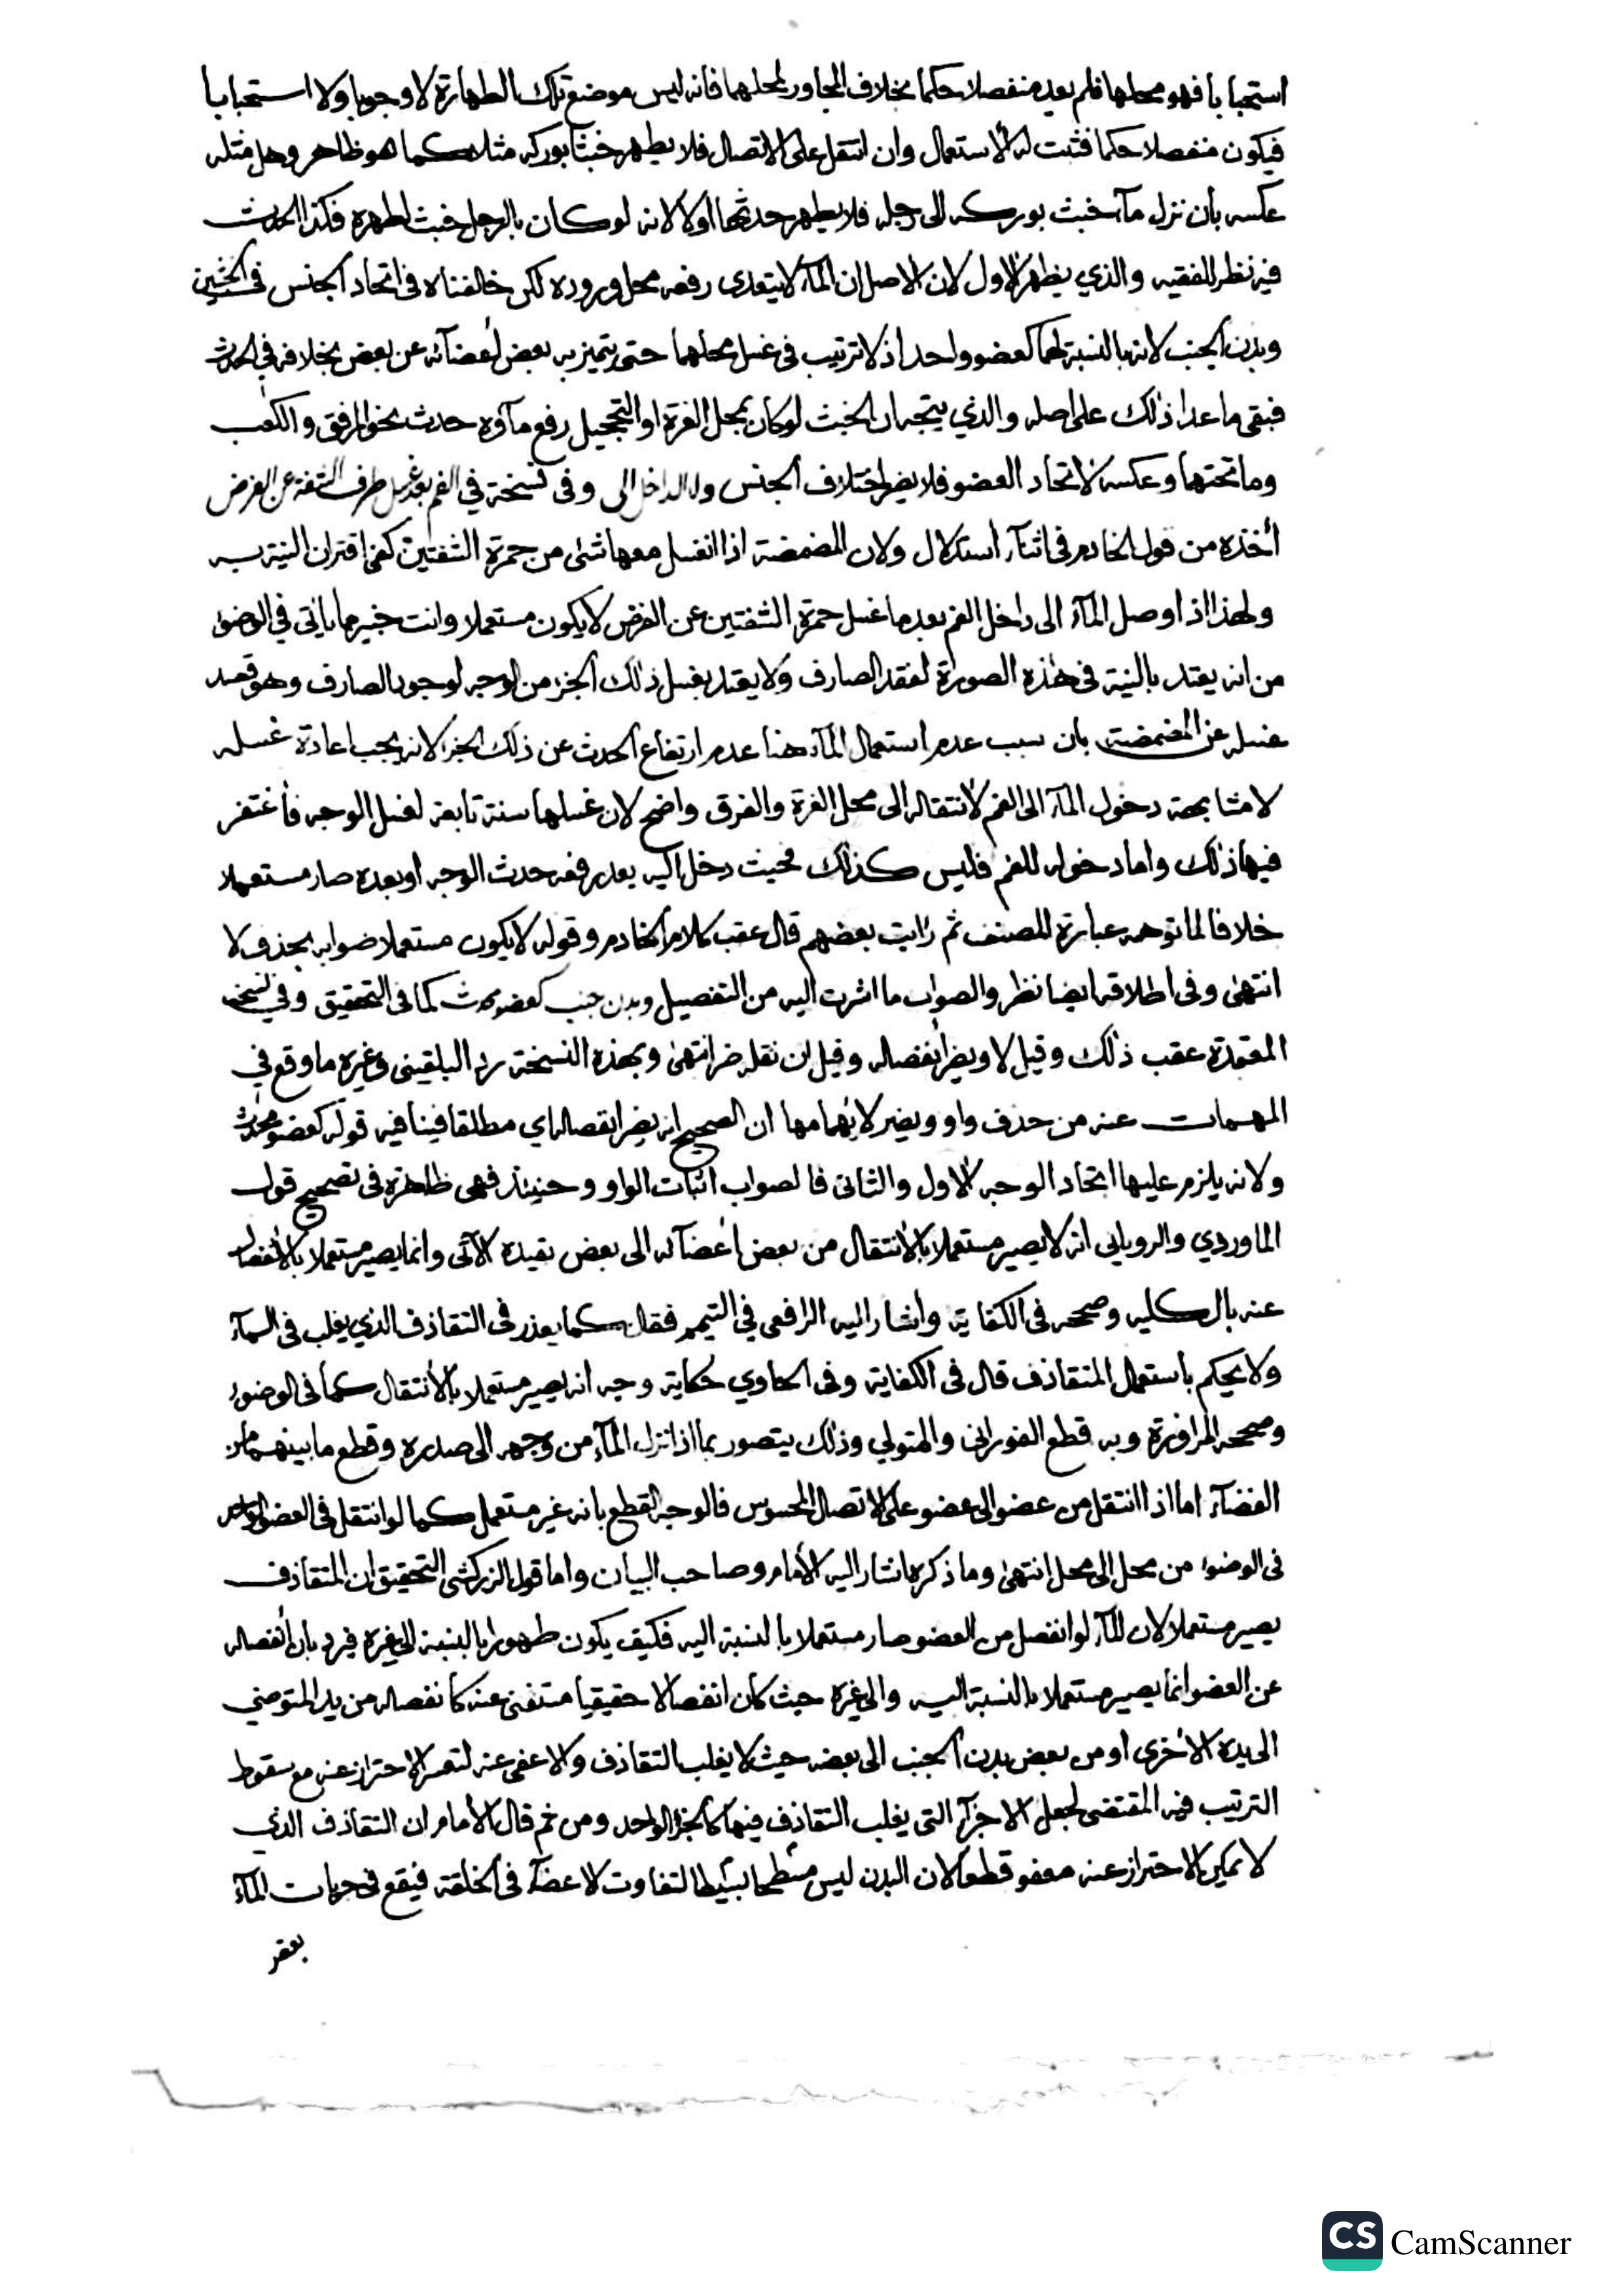 استحبابا فهو محلها فلم يعد منفصلا حكما بخلاف المجاور لمحلهما فانه ليس موضع تلك الطهارة لا وجوبا ولا استحبابا
فيكون منفصلا حكما فثبت له الاستعمال وان انتقل على الاتصال فلا يطهر خبثا بوركه مثلا كما هو ظاهر وهل مثله
عكسه بأن نزل ماء خبث بوركه الى رجله فلا يطهر حدثها اولا لانه لو كان بالرجل خبث لطهره فكذا الحدث
فيه نظر للفقيه والذي يظهر الاول لان الاصل ان الماء لا يتعدى رفعه محل وروده لكن خالفناه في اتحاد الجنس في الخبثين
وبدن الجنب لانه بالنسبة لهما كعضو واحد اذ لا ترتيب في غسل محلهما حتى يتميز به بعض أعضائه عن بعض بخلافه في الحدث
فبقي ما عدا ذلك على اصله والذي يتجه ان الخبث لو كان بمحل الغرة او التحجيل رفع ماؤه حدث نحو المرفق والكعب
وما تحتهما وعكسه لاتحاد العضو فلا يضر اختلاف الجنس ولا الداخل الى وفي نسخة في الفم بعد غسل طرف الشفة عن الفرض
أخذه من قول الخادم في اثناء استدلال ولان المضمضة اذا انغسل معها شئ من حمرة الشفتين كفى اقتران النية به
ولهذا اذا وصل الماء الى داخل الفم بعد ما غسل حمرة الشفتين عن الفرض لا يكون مستعملا وانت خبير مما يأتي في الوضوء
من انه يعتد بالنية في هذه الصورة لفقد الصارف ولا يعتد بغسل ذلك الجزء من الوجه لوجود الصارف وهو قصد
غسله عن المضمضة بان سبب عدم استعمال الماء هنا عدم ارتفاع الحدث عن ذلك الجزء لانه يجب اعادة غسله
لا مشابهة دخول الماء الى الفم لانتقاله الى محل الغرة والفرق واضح لان غسلها سنة تابعة لغسل الوجه فاغتفر
فيها ذلك واما دخوله للفم فليس كذلك فحيث دخل اليه بعد رفعه حدث الوجه او بعده صار مستعملا
خلافا لما توهمه عبارة المصنف ثم رايت بعضهم قال عقب كلام الخادم وقوله لا يكون مستعملا صوابه بحذف لا
انتهى وفي اطلاقه ايضا نظر والصواب ما اشرت اليه من التفصيل وبدن جنب كعضو محدث كما في التحقيق وفي نسخه
المعتمدة عقب ذلك وقيل لا ويضر انفصاله وقيل ان نقله ضر انتهى وبهذه النسخة رد البلقيني وغيره ما وقع في
المهمات عنه من حذف واو ويضر لايهامها ان الصحيح انه يضر انفصاله اي مطلقا فينافيه قوله كعضو محدث
ولانه يلزم عليها اتحاد الوجه الاول والثاني فالصواب اثبات الواو وحينئذ فهي ظاهرة في تصحيح قول
الماوردي والروياني انه لا يصير مستعملا بالانتقال من بعض أعضائه الى بعض بقيده الآتي وانما يصير مستعملا بالانفصال
عنه بالكلية وصححه في الكفاية واشار اليه الرافعي في التيمم فقال كما يعذر في التقاذف الذي يغلب في الماء
ولا يحكم باستعمال المتقاذف قال في الكفاية وفي الحاوي حكاية وجه انه يصير مستعملا بالانتقال كما في الوضوء
وصححه المراوزة وبه قطع الفوراني والمتولي وذلك يتصور بما اذا نزل الماء من وجهه الى صدره وقطع ما بينهما من
الفضاء اما اذا انتقل من عضو الى عضو على الاتصال المحسوس فالوجه القطع بانه غير مستعمل كما لو انتقل في العضو الواحد
في الوضوء من محل الى محل انتهى وما ذكره اشار اليه الامام وصاحب البيان واما قول الزركشي التحقيق ان المتقاذف
يصير مستعملا لان الماء لو انفصل من العضو صار مستعملا بالنسبة اليه فكيف يكون طهورا بالنسبة الى غيره فيرد بان انفصاله
عن العضو انما يصير مستعملا بالنسبة اليه والى غيره حيث كان انفصالا حقيقيا مستغنى عنه كانفصاله من يد المتوضي
الى يده الاخرى او من بعض بدن الجنب الى بعضه حيث لا يغلب التقاذف والا عفي عنه لتعسر الاحتراز عنه مع سقوط
الترتيب فيه المقتضى لجعل الاجزاء التي يغلب التقاذف فيها كالجزء الواحد ومن ثم قال الامام ان التقاذف الذي
لا يمكن الاحتراز عنه معفو قطعا لان البدن ليس مسطحا بسيطا لتفاوت الاعضاء في الخلقة فيقع في جريات الماء
بعض
CS CamScanner